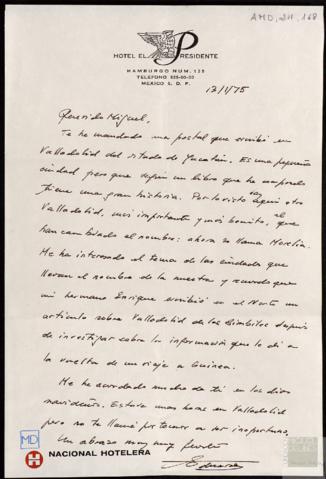 AMD, 211, 168
HOTEL EL PRESIDENTE
HAMBURGO NUM. 135
TELEFONO 525-00-00
MEXICO 6, D. F.
12/1/75
Querido Miguel,
Te he mandado una postal que escribí en
Valladolid del estado de Yucatán. Es una pequeña
ciudad pero que según un libro que he comprado
tiene una gran historia. Por lo visto hay aquí otro
Valladolid, más importante y más bonito, al que
han cambiado el nombre: ahora se llama Morelia.
Me ha interesado el tema de las ciudades que
llevan el nombre de la nuestra y recuerdo que
mi hermano Enrique escribió en el Norte un
artículo sobre Valladolid de los Bimbiles después
de investigar sobre la información que le di a
la vuelta de un viaje a Guinea.
Me he acordado mucho de ti en los días
navideños. Estuve unas horas en Valladolid
pero no te llamé por temor a ser inoportuno.
Un abrazo muy muy fuerte
MD
H NACIONAL HOTELERA